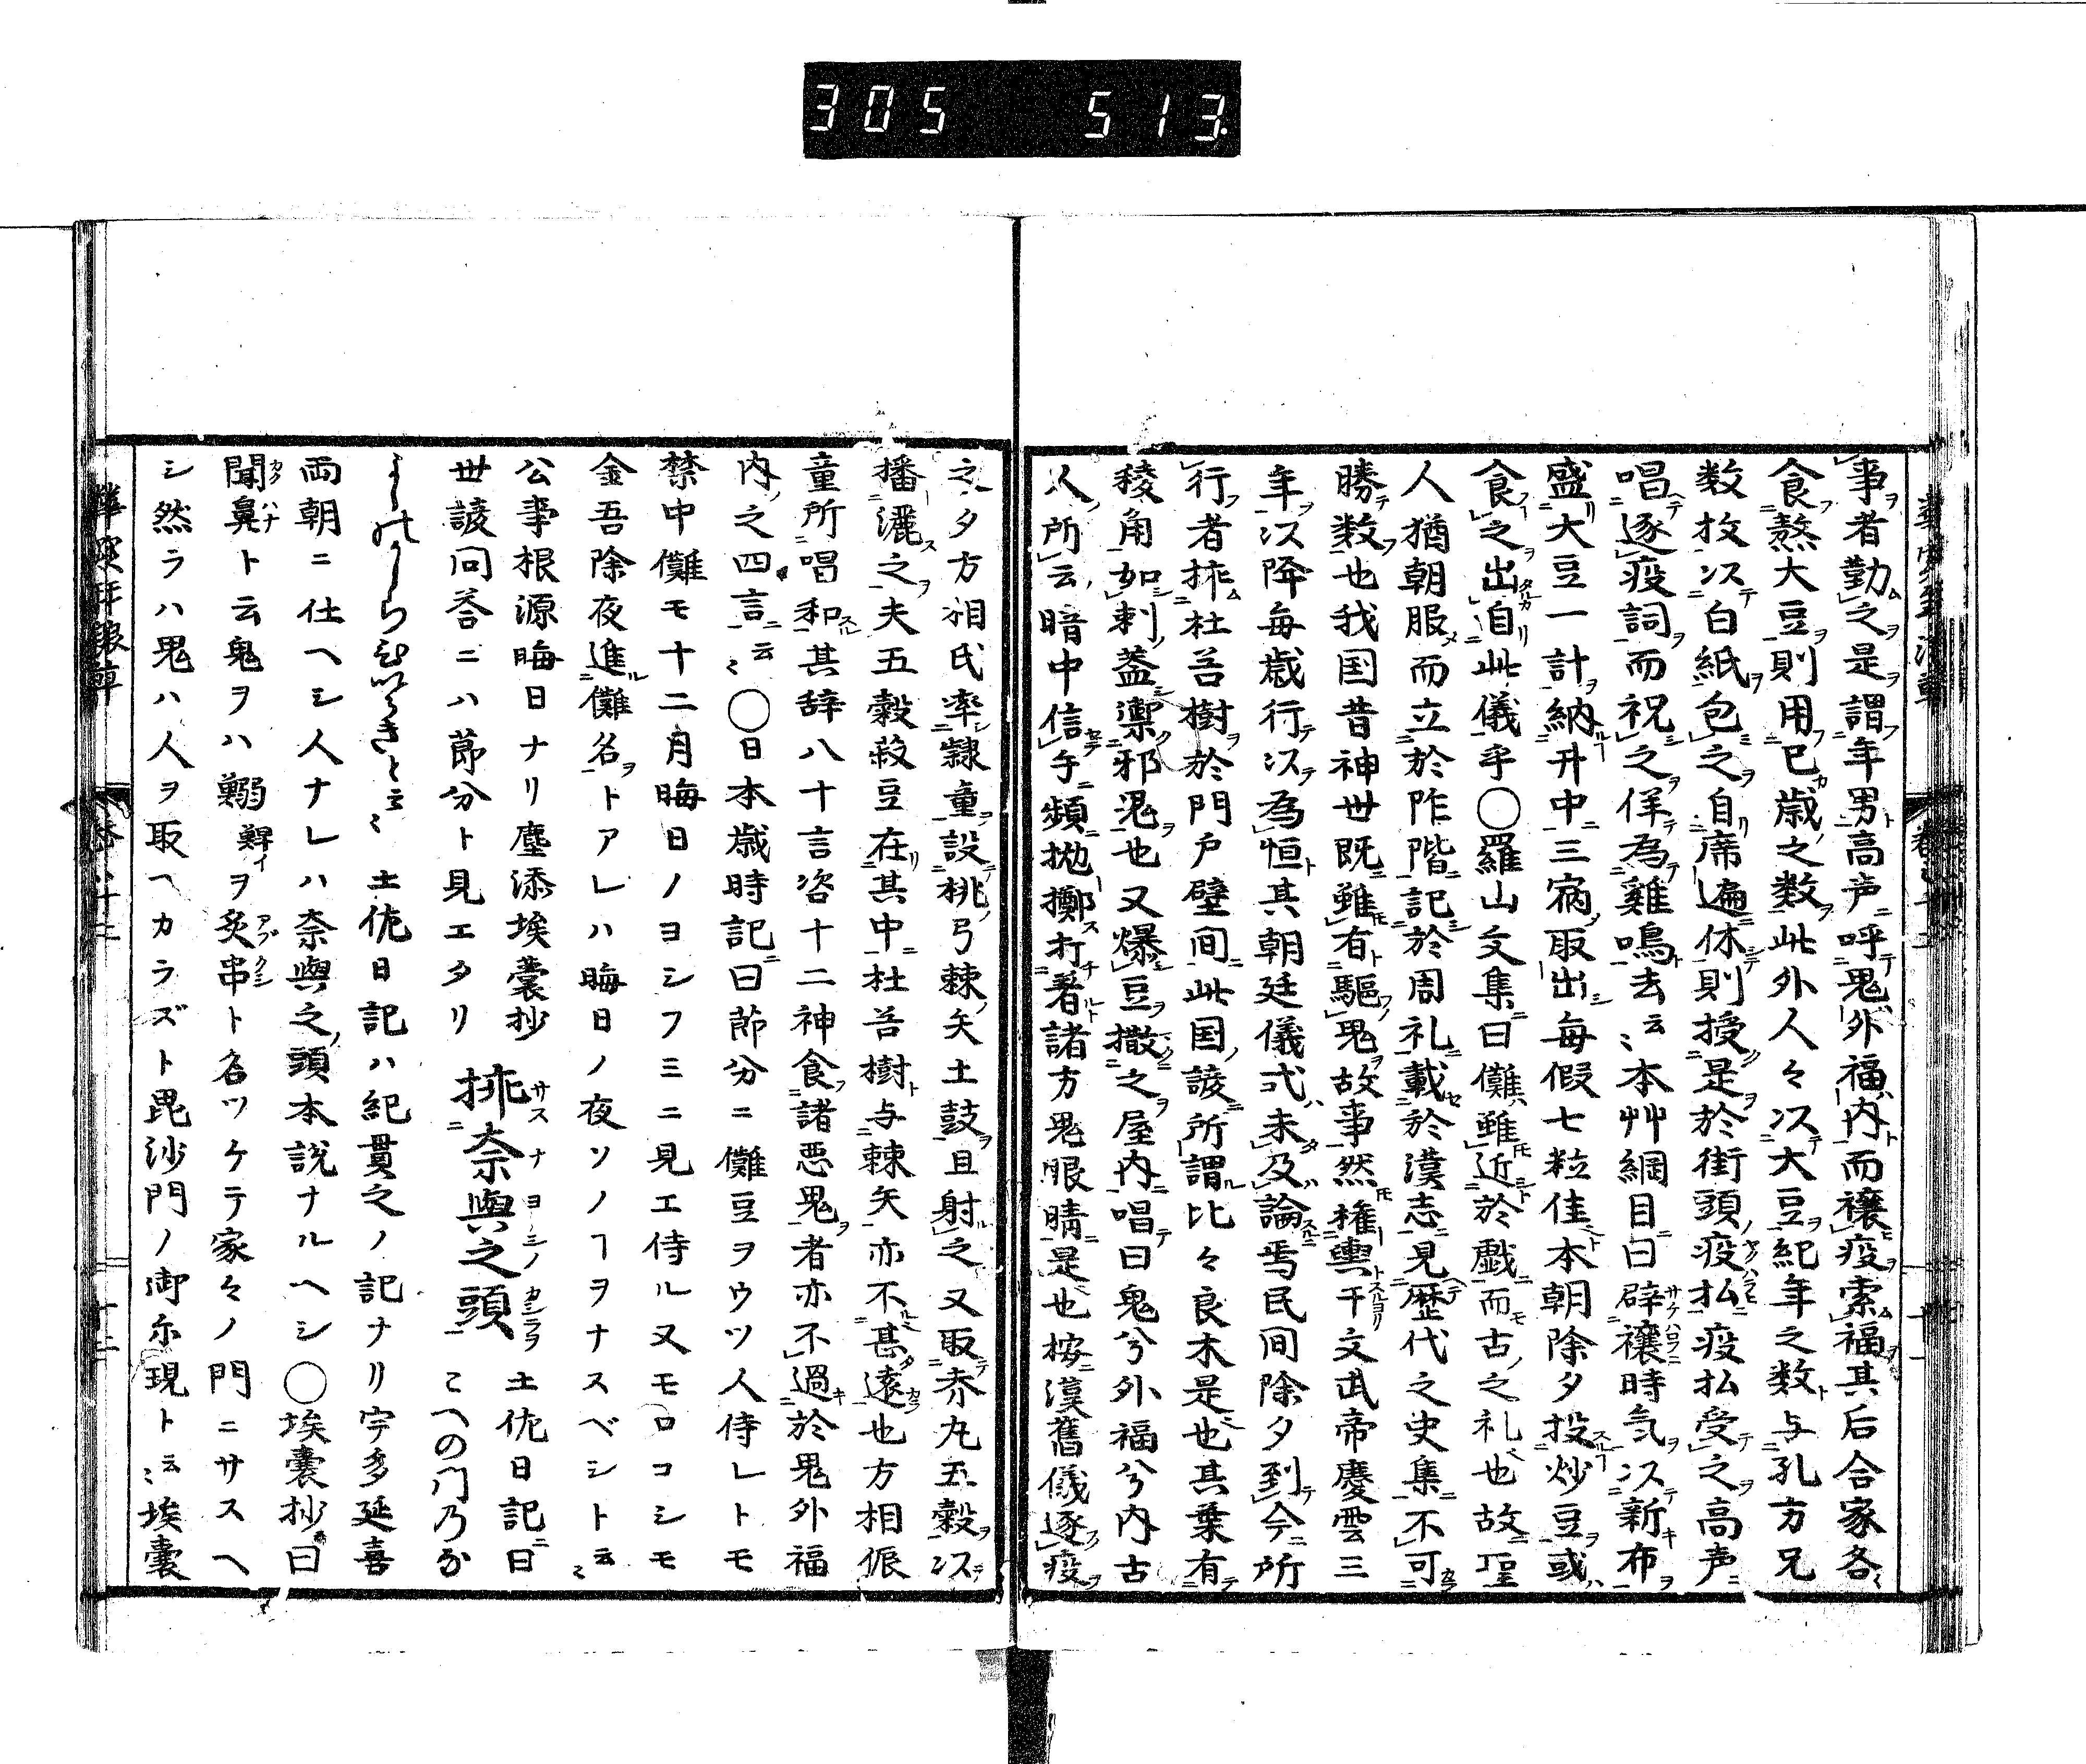 305 513
事者勤之是謂年男高声呼鬼外福内而禳疫索福其后合家各
食熬大豆則用已歳之数此外人々以大豆紀年之数与孔方兄
数枚以白紙包之自席遍休則授是於街頭疫払疫払受之高声
唱逐疫詞而祝之佯為雞鳴去云〻本艸綱目曰辟禳時気以新布
盛大豆一計納井中三宿取出毎假七粒佳本朝除夕投炒豆或
食之出自此儀乎〇羅山文集曰儺雖近於戯而古之礼也故聖
人猶朝服而立於阼階記於周礼載於漢志見歴代之史集不可
勝数也我国昔神世既雖有駆鬼故事然権輿干文武帝慶雲三
年以降毎歳行以為恒其朝廷儀式未及論焉民間除夕到今所
行者挿杜谷樹於門戸壁間此国諺所謂比々良木是也其葉有
稜角如刺蓋禦邪鬼也又爆豆撒之屋内唱曰鬼兮外福兮内古
人所云暗中信手頻抛擲打著諸方鬼眼睛是也按漢舊儀逐疫
之夕方相氏率隷童設桃弓棘矢土鼓且射之又取赤丸五穀以
播灑之夫五穀菽豆在其中杜谷樹与棘矢亦不甚遠也方相侲
童所唱和其辞八十言咨十二神食諸悪鬼者亦不過於鬼外福
内之四言云〻〇日本歳時記曰節分ニ儺豆ヲウツ人侍レトモ
禁中儺モ十二月晦日ノヨシフミニ見エ侍ル又モロコシモ
金吾除夜進儺名トアレハ晦日ノ夜ソノヿヲナスベシト云〻
公事根源晦日ナリ塵添埃囊抄
世諺問答ニハ節分ト見エタリ
挿奈與之頭
土佐日記曰
こへの門乃
土佐日記ハ紀貫之ノ記ナリ宇多延喜
両朝ニ仕ヘシ人ナレハ奈與之頭本説ナルヘシ〇埃囊抄曰
聞鼻ト云鬼ヲハ鰯ヲ炙串ト名ツケテ家々ノ門ニサスヘ
シ然ラハ鬼ハ人ヲ取ヘカラズト毘沙門ノ御示現ト云〻埃囊